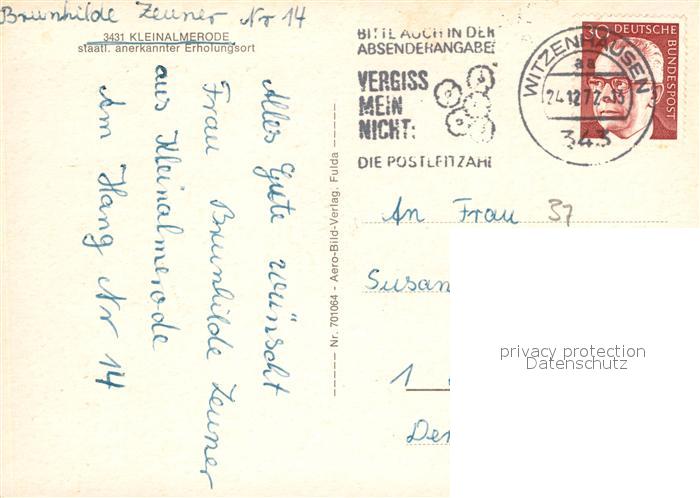 Brunhilde Zeuner Nr 14
3431 KLEINALMERODE
staatl. anerkannter Erholungsort
Alles Gute wünscht
Frau Brunhilde Zeuner
aus Kleinalmerode
Am Hang Nr 14
Nr. 701064 - Aero-Bild-Verlag, Fulda
BITTE AUCH IN DER
ABSENDERANGABE
VERGISS
MEIN
NICHT:
DIE POSTLEITZAHL
WITZENHAUSEN
aa
343
30 DEUTSCHE
BUNDESPOST
An Frau 37
Susan
1
privacy protection
Datenschutz